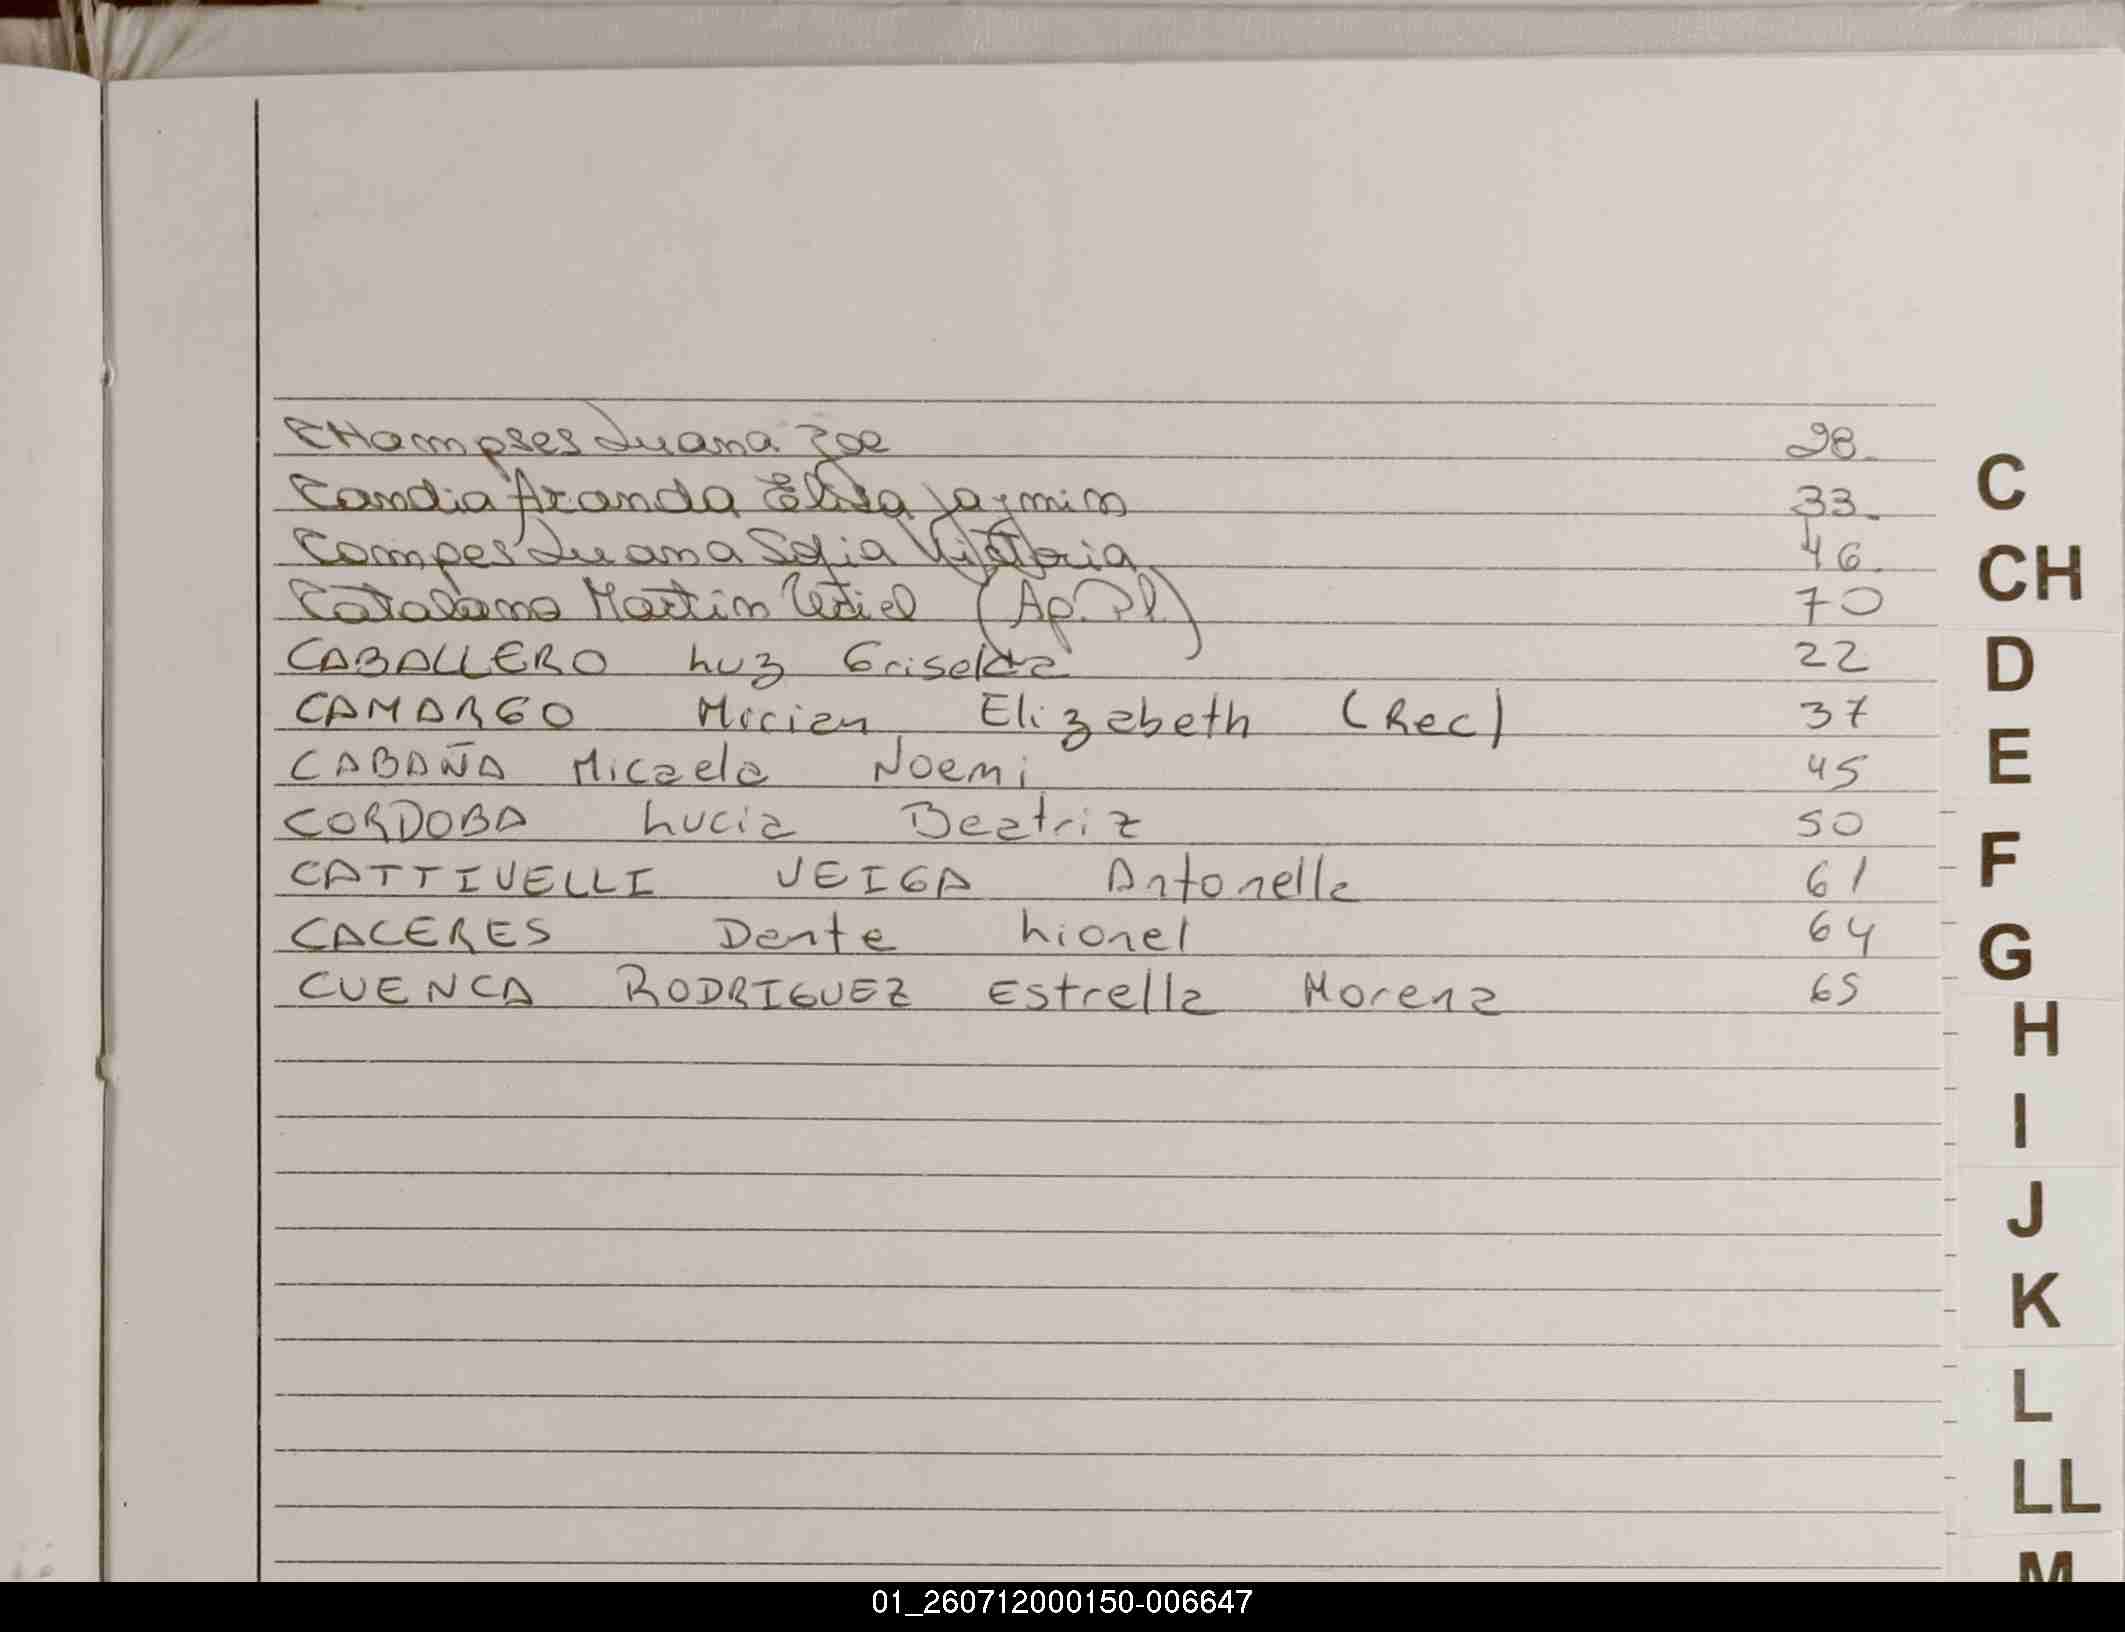 CHampses Luana Zoe 28.
Candia Aranda Elisa Jazmin 33.
Campes Luana Sofia Victoria 46.
Catalano Martin Uziel (Ap. Pl) 70
CABALLERO Luz Griselda 22
CAMARGO Mirian Elizabeth (Rec) 37
CABAÑA Micaela Noemi 45
CORDOBA Lucia Beatriz 50
CATTIVELLI VEIGA Antonella 61
CACERES Dante Lionel 64
CUENCA RODRIGUEZ Estrella Morena 65
C
CH
D
E
F
G
H
I
J
K
L
LL
M
01_260712000150-006647